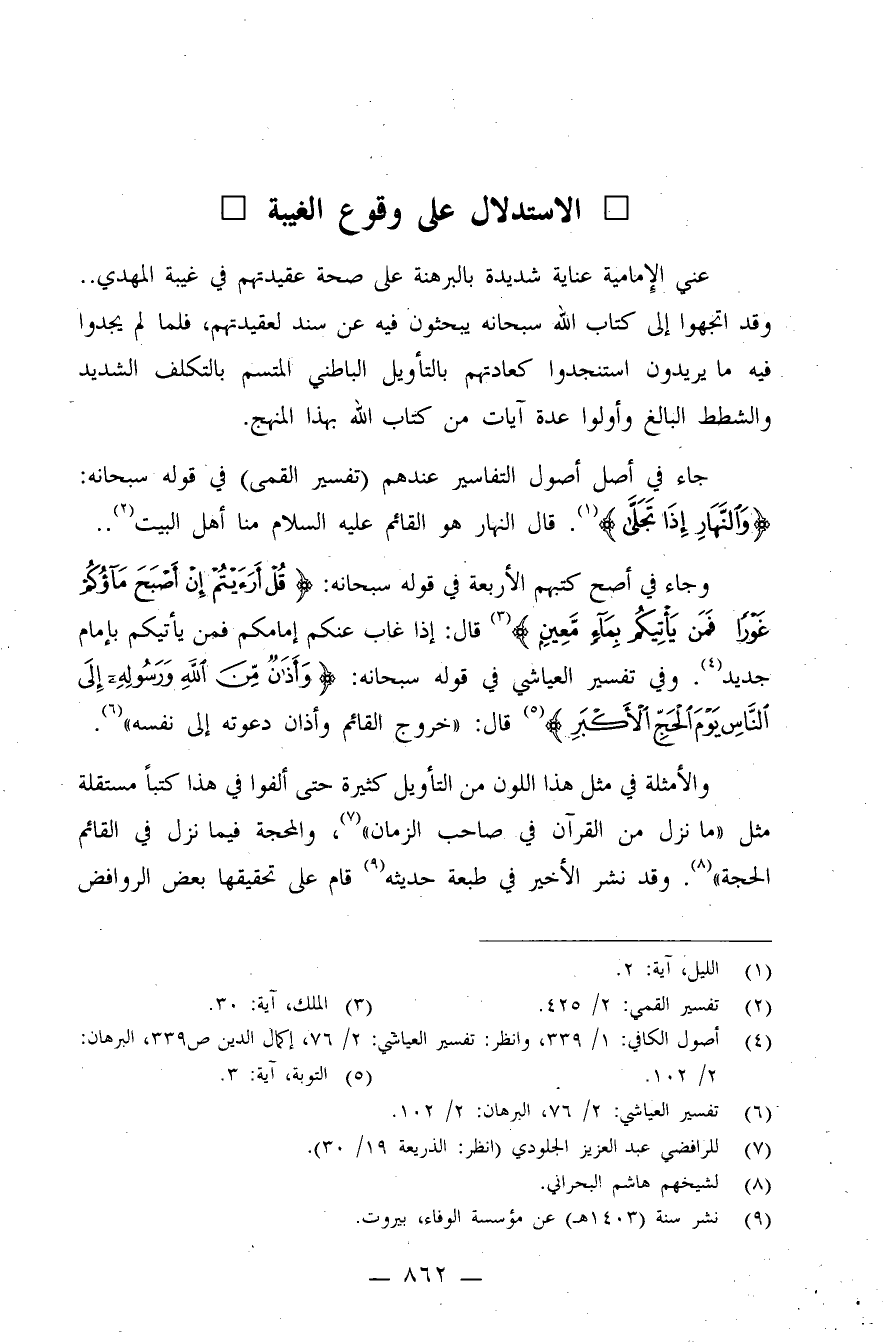 □ الاستدلال على وقوع الغيبة □
عني الإمامية عناية شديدة بالبرهنة على صحة عقيدتهم في غيبة المهدي..
وقد اتجهوا إلى كتاب الله سبحانه يبحثون فيه عن سند لعقيدتهم، فلما لم يجدوا
فيه ما يريدون استنجدوا كعادتهم بالتأويل الباطني المتسم بالتكلف الشديد
والشطط البالغ وأولوا عدة آيات من كتاب الله بهذا المنهج.
جاء في أصل أصول التفاسير عندهم (تفسير القمى) في قوله سبحانه:
﴿وَٱلنَّهَارِ إِذَا تَجَلَّىٰ﴾(١). قال النهار هو القائم عليه السلام منا أهل البيت(٢)..
وجاء في أصح كتبهم الأربعة في قوله سبحانه: ﴿قُلْ أَرَءَيْتُمْ إِنْ أَصْبَحَ مَآؤُكُمْ
غَوْرًا فَمَن يَأْتِيكُم بِمَآءٍ مَّعِينٍ﴾(٣) قال: إذا غاب عنكم إمامكم فمن يأتيكم بإمام
جديد(٤). وفي تفسير العياشي في قوله سبحانه: ﴿وَأَذَٰنٌ مِّنَ ٱللَّهِ وَرَسُولِهِۦٓ إِلَى
ٱلنَّاسِ يَوْمَ ٱلْحَجِّ ٱلْأَكْبَرِ﴾(٥) قال: «خروج القائم وأذان دعوته إلى نفسه»(٦).
والأمثلة في مثل هذا اللون من التأويل كثيرة حتى ألفوا في هذا كتباً مستقلة
مثل «ما نزل من القرآن في صاحب الزمان»(٧)، والمحجة فيما نزل في القائم
الحجة»(٨). وقد نشر الأخير في طبعة حديثه(٩) قام على تحقيقها بعض الروافض
(١) الليل، آية: ٢.
(٢) تفسير القمي: ٢/ ٤٢٥. (٣) الملك، آية: ٣٠.
(٤) أصول الكافي: ١/ ٣٣٩، وانظر: تفسير العياشي: ٢/ ٧٦، إكمال الدين ص٣٣٩، البرهان:
٢/ ١٠٢. (٥) التوبة، آية: ٣.
(٦) تفسير العياشي: ٢/ ٧٦، البرهان: ٢/ ١٠٢.
(٧) للرافضي عبد العزيز الجلودي (انظر: الذريعة ١٩/ ٣٠).
(٨) لشيخهم هاشم البحراني.
(٩) نشر سنة (١٤٠٣هـ) عن مؤسسة الوفاء، بيروت.
— ٨٦٢ —